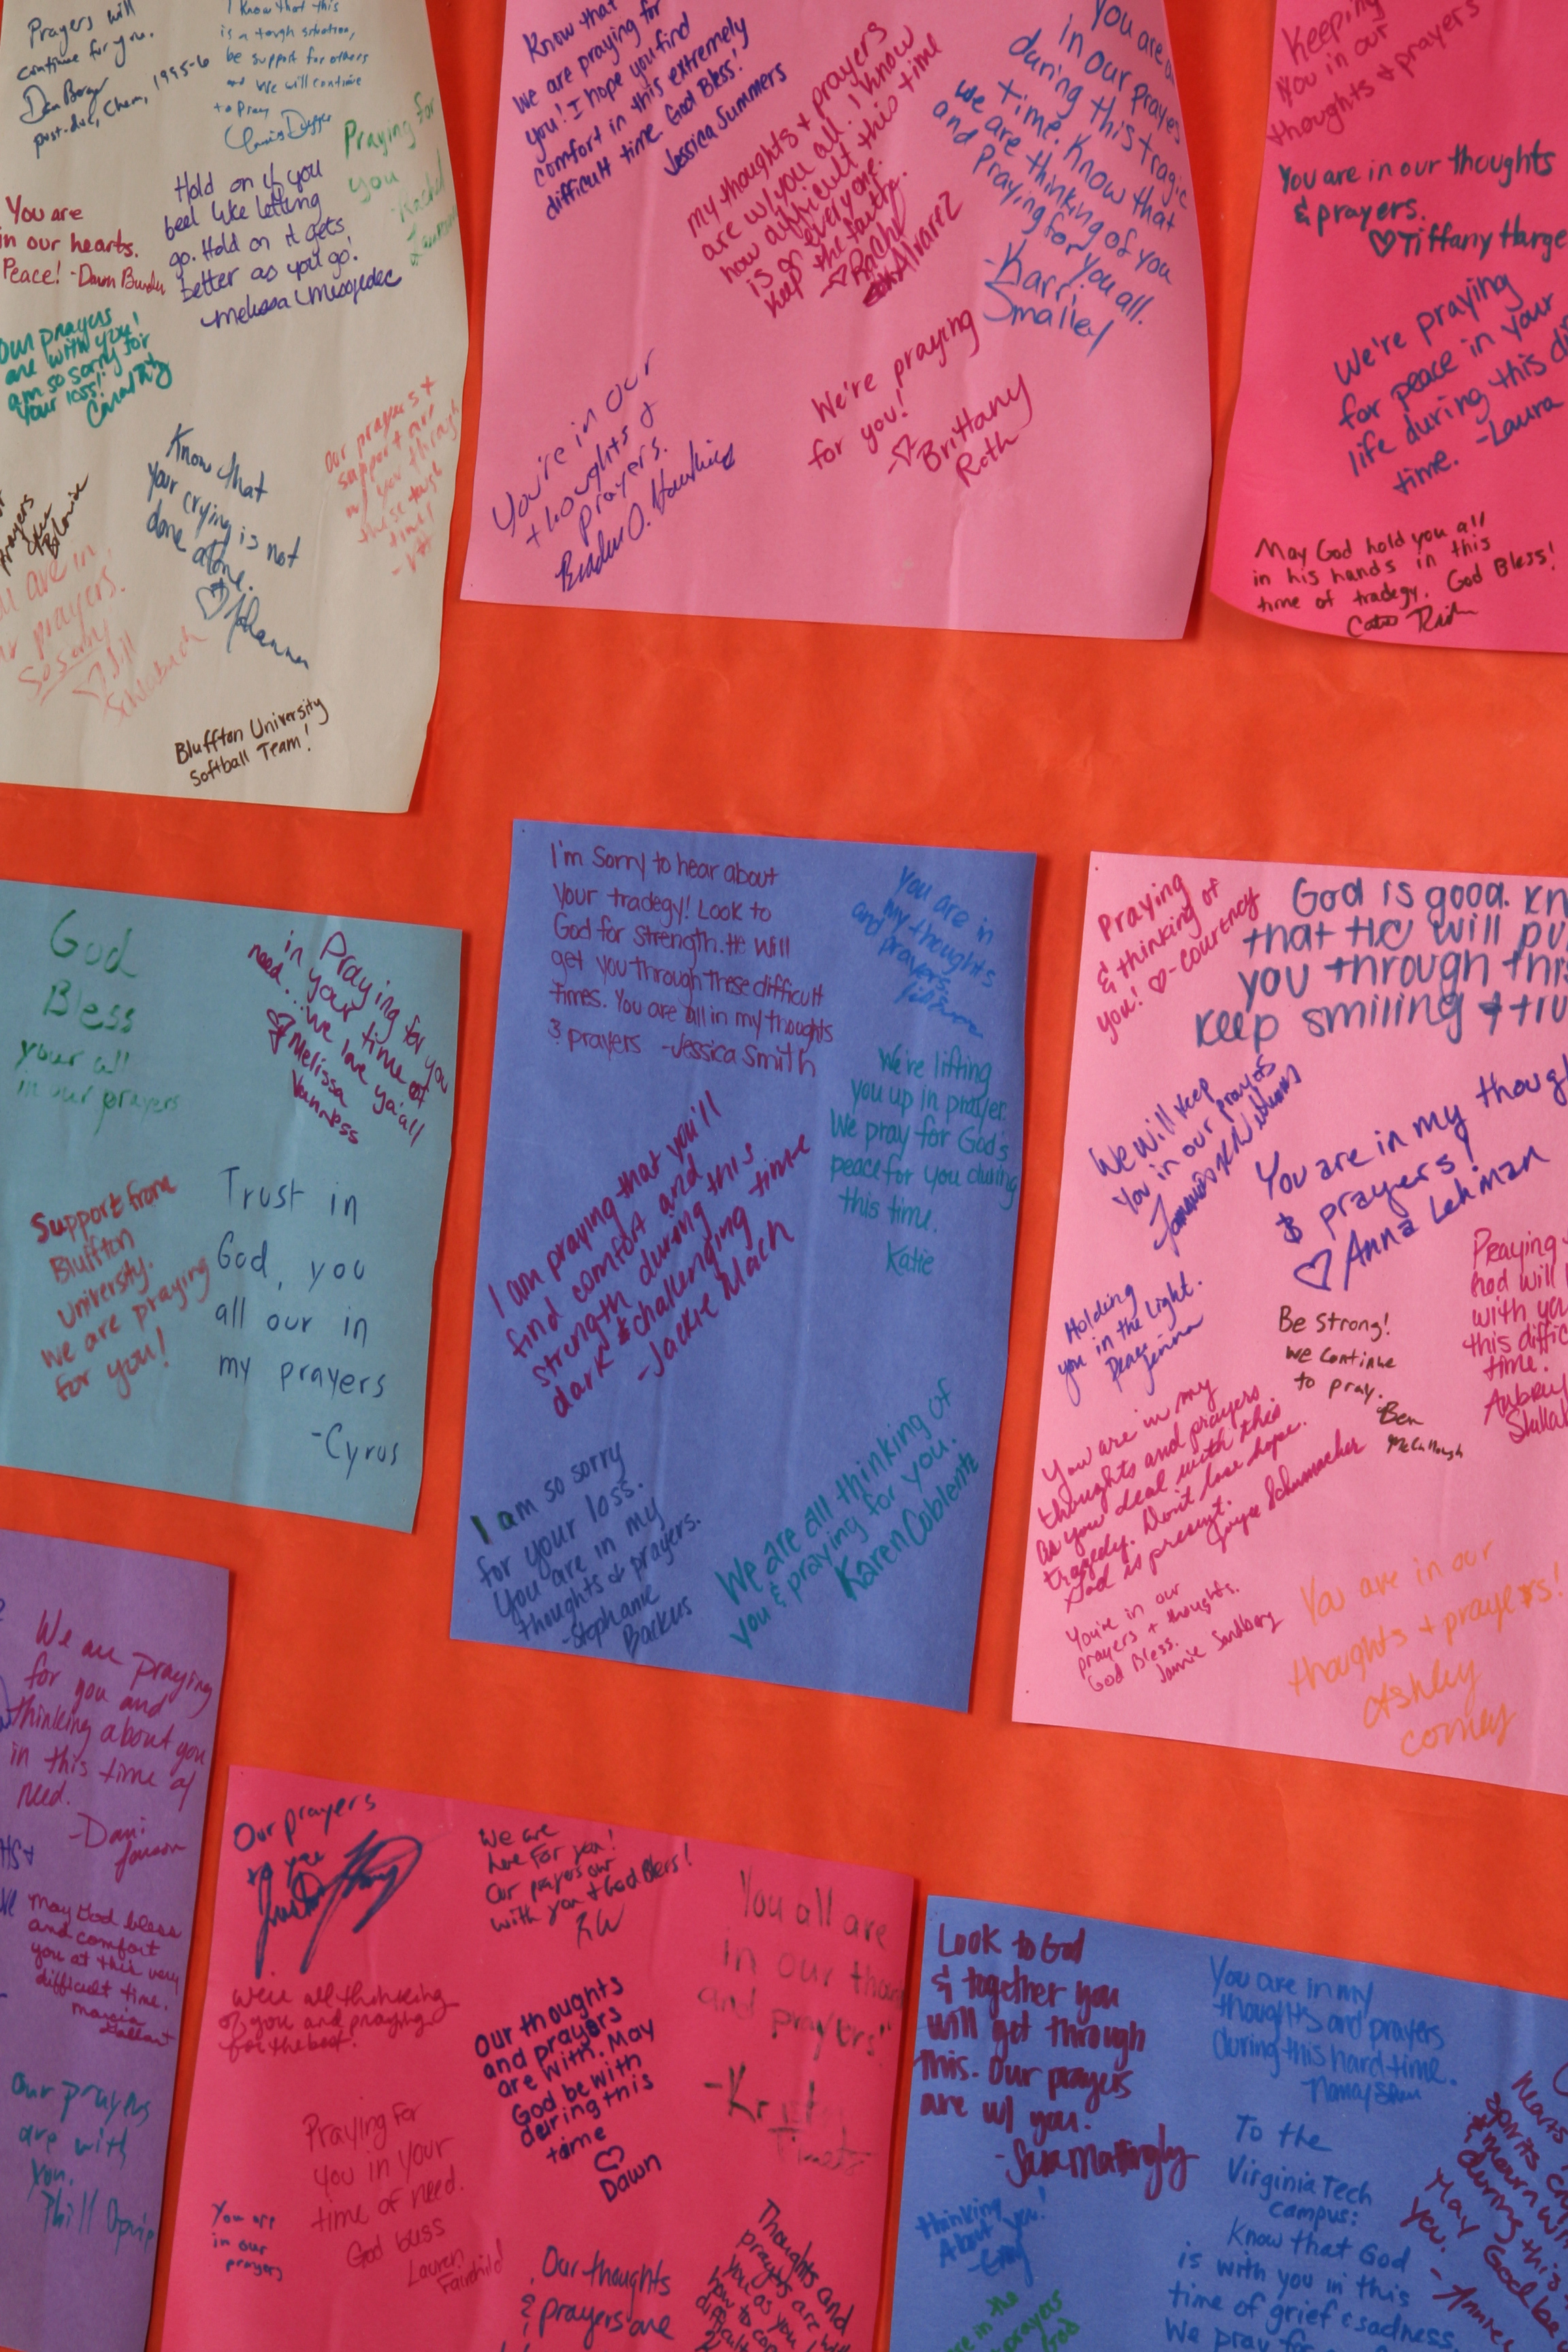 Prayers will
continue for you.
post-doc, Chem, 1995-6
I know that this
is a tough situation,
be support for others
and we will continue
to pray
Praying for
you
Rachel
You are
in our hearts.
Peace! -Dawn
Hold on if you
feel like letting
go. Hold on it gets
better as you go!
Melissa
our prayers
are with you!
am so sorry for
your loss!
our prayers +
support are
w/ you through
these tough
times!
Know that
your crying is not
done alone.
♡ Johanna
prayers
are in
prayers.
so sorry
♡ Jill
Schlabach
Bluffton University
Softball Team!
Know that
we are praying for
you! I hope you find
comfort in this extremely
difficult time. God Bless!
Jessica Summers
my thoughts & prayers
are w/ you all. I know
how difficult this time
is on everyone.
Keep the faith.
♡ Rachel
Alvarez
You are
in our prayers
during this tragic
time. Know that
we are thinking of you
and praying for you all.
-Karri
Smalley
You're in our
thoughts &
prayers.
We're praying
for you!
-♡ Brittany
Roth
Keeping
you in our
thoughts & prayers
You are in our thoughts
& prayers.
♡ Tiffany
We're praying
for peace in your
life during this
time. -Laura
May God hold you all
in his hands in this
time of tradegy. God Bless!
God
Bless
your all
in our prayers
Praying for you
in your time of
need... we love ya'all
♡ Melissa
Vanness
Support from
Bluffton
University.
we are praying
for you!
Trust in
God, you
all our in
my prayers
-Cyrus
I'm Sorry to hear about
your tradegy! Look to
God for strength. He will
get you through these difficult
times. You are all in my thoughts
& prayers -Jessica Smith
You are in
my thoughts
and prayers.
We're lifting
you up in prayer.
We pray for God's
peace for you during
this time.
Katie
I am praying that you'll
find comfort and
strength during this
dark & challenging time
-Jackie Mach
I am so sorry
for your loss.
You are in my
thoughts & prayers.
-Stephanie
Barkus
We are all thinking of
you & praying for you.
Karen Coblentz
Praying
& thinking of
you! ♡-Courtney
God is good.
that He will
you through this
keep smiling &
We will keep
you in our prayers
You are in my
& prayers!
♡ Anna Lehman
Holding
you in the Light.
Peace
Jenina
Be strong!
we continue
to pray.
Ben
McCullough
Praying
God will
with you
this
time.
You are in my
thoughts and prayers
as you deal with this
tragedy. Don't lose hope.
God is present.
Joyce Schumacher
You're in our
prayers + thoughts.
God Bless.
Jamie Sandberg
You are in our
thoughts + prayers!
Ashley
We are praying
for you and
thinking about you
in this time of
need.
-Dani
May God bless
and comfort
you at this very
difficult time.
Marcia
our prayers
are with
you.
Our prayers
to you
We are
here For you!
Our prayers our
with you & God Bless!
You all are
in our
and prayers"
We're all thinking
of you and praying
for the best.
our thoughts
and prayers
are with. May
God be with
during this
time
♡
Dawn
Praying for
you in your
time of need.
God bless
Lauren
Fairchild
You are
in our
prayers
Our thoughts
& prayers are
Thoughts and
prayers are with
you as you
how to
Look to God
& together you
will get through
this. Our prayers
are w/ you.
-Sara Mattingly
You are in my
thoughts and prayers
during this hard time.
Thinking
About you!
To the
Virginia Tech
campus:
Know that God
is with you in this
time of grief & sadness
We pray for
Hearts
spirits
& mourn
during this
May God
you.
in the
prayers
God